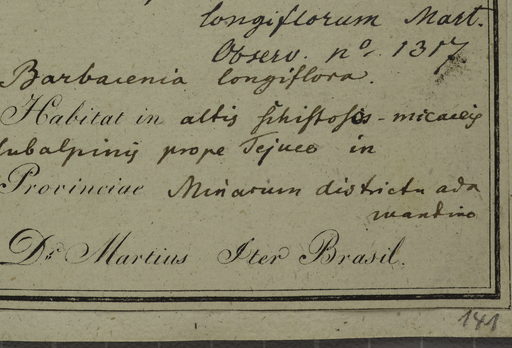 longiflorum Mart.
Observ. nº. 1317
Barbacenia longiflora.
Habitat in altis schistosis-micaceis
subalpinis prope Tejuco in
Provinciae Minarum districtu ada
mantino
Dr. Martius Iter Brasil.
141